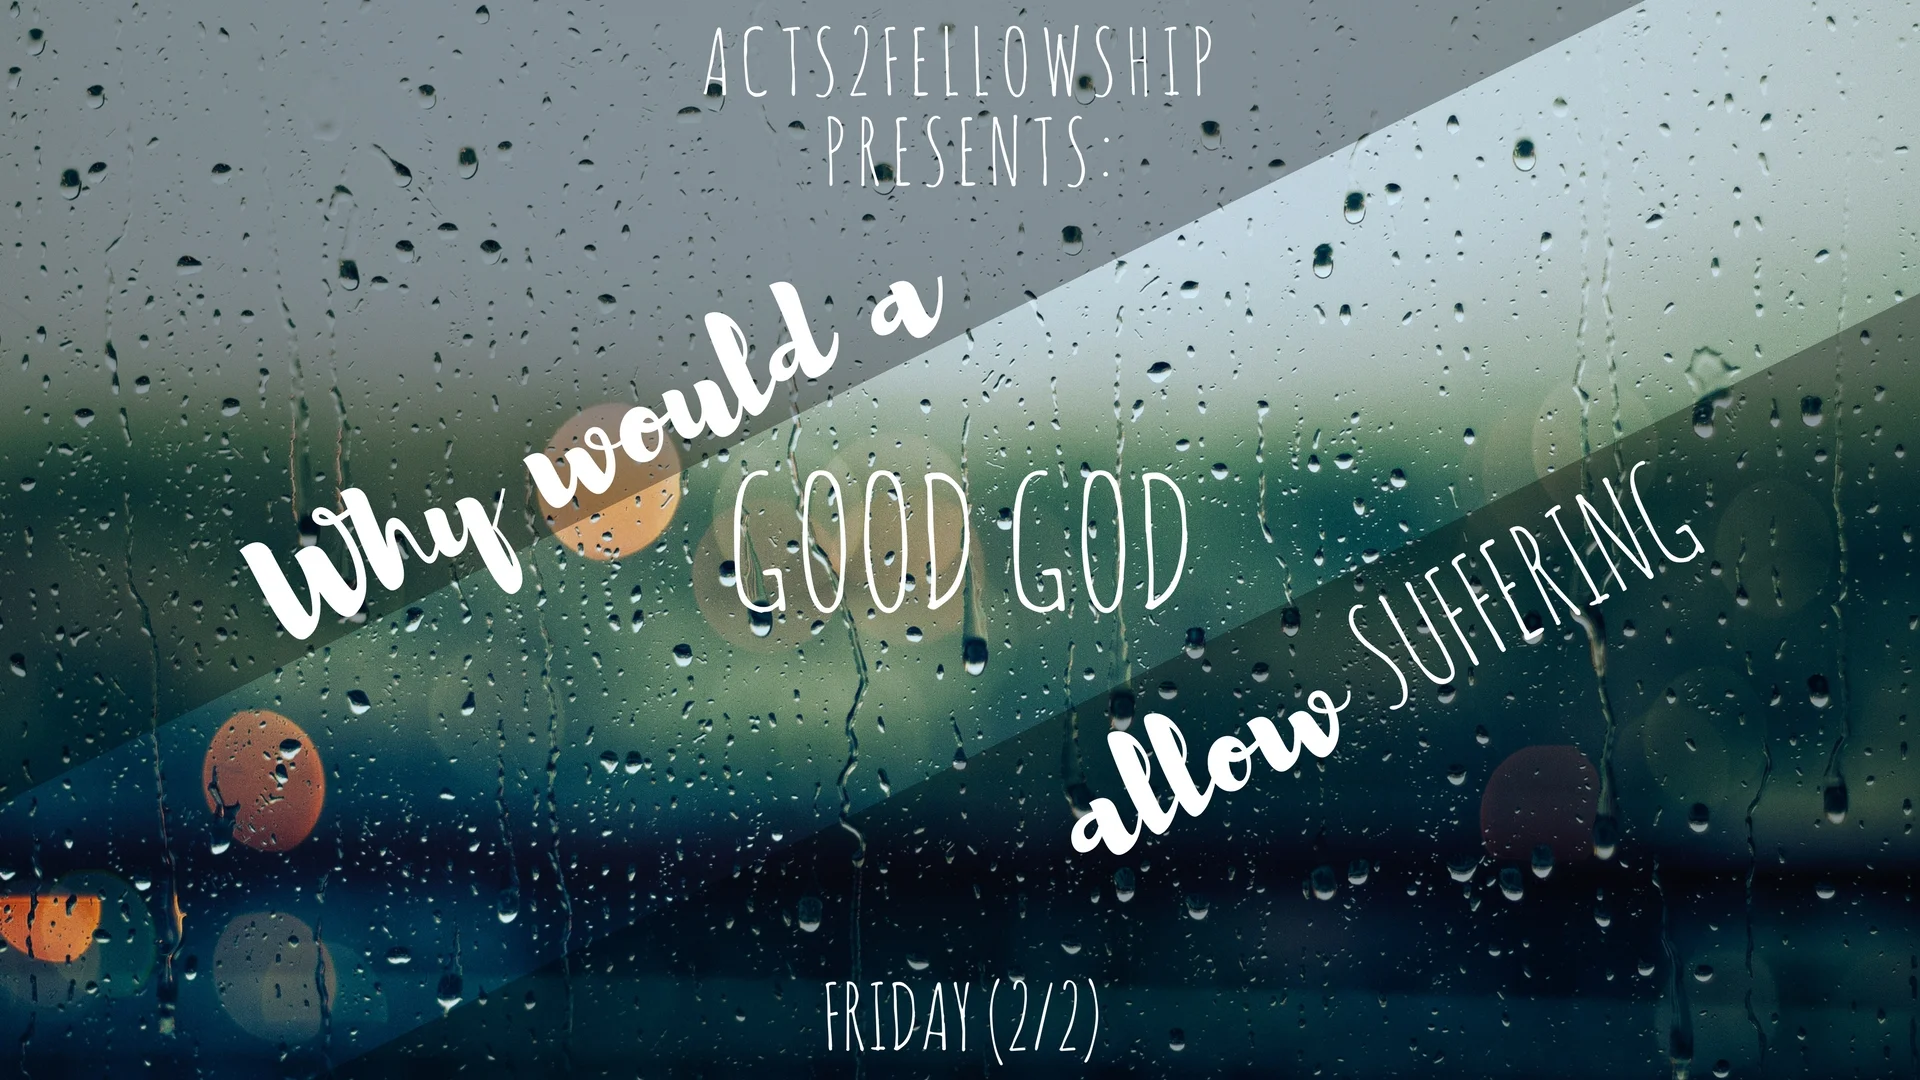 ACTS2FELLOWSHIP
PRESENTS:
Why would a
GOOD GOD
allow SUFFERING
FRIDAY (2/2)